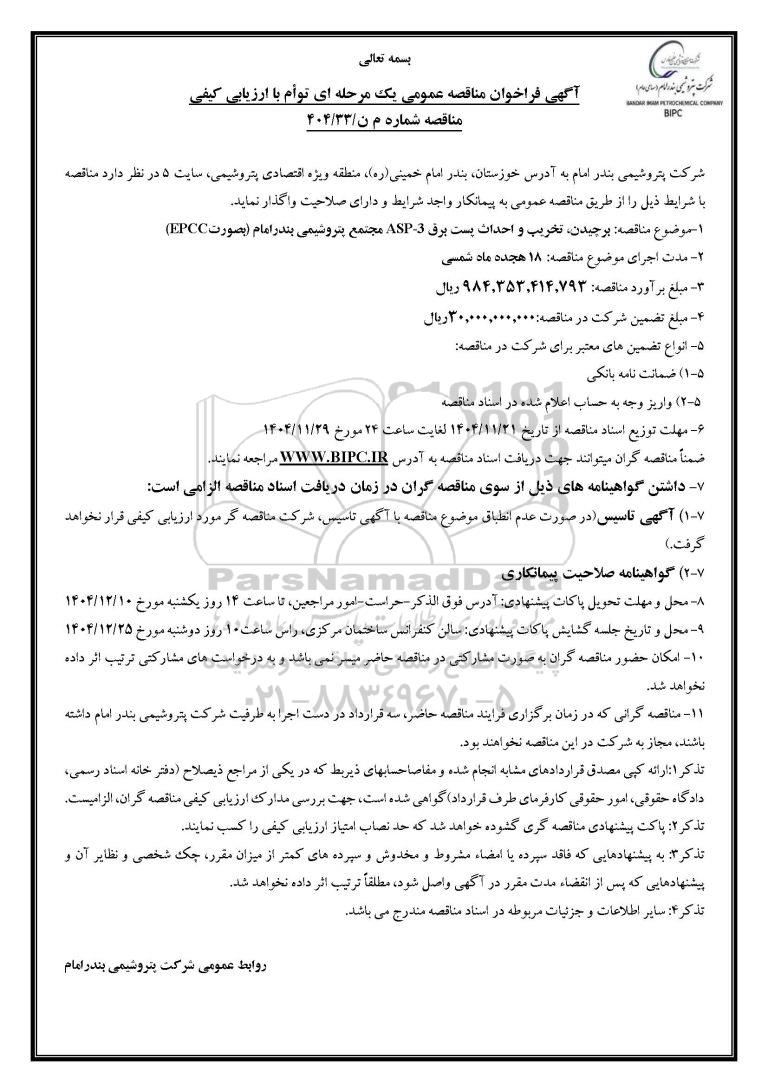 بسمه تعالی
شرکت پتروشیمی بندرامام (سهامی عام)
BANDAR IMAM PETROCHEMICAL COMPANY
BIPC
آگهی فراخوان مناقصه عمومی یک مرحله ای توأم با ارزیابی کیفی
مناقصه شماره م ن/۴۰۴/۳۳
شرکت پتروشیمی بندر امام به آدرس خوزستان، بندر امام خمینی(ره)، منطقه ویژه اقتصادی پتروشیمی، سایت ۵ در نظر دارد مناقصه
با شرایط ذیل را از طریق مناقصه عمومی به پیمانکار واجد شرایط و دارای صلاحیت واگذار نماید.
۱-موضوع مناقصه: برچیدن، تخریب و احداث پست برق ASP-3 مجتمع پتروشیمی بندرامام (بصورتEPCC)
۲- مدت اجرای موضوع مناقصه: ۱۸ هجده ماه شمسی
۳- مبلغ برآورد مناقصه: ۹۸۴,۳۵۳,۴۱۴,۷۹۳ ریال
۴- مبلغ تضمین شرکت در مناقصه:۳۰,۰۰۰,۰۰۰,۰۰۰ریال
۵- انواع تضمین های معتبر برای شرکت در مناقصه:
۱-۵) ضمانت نامه بانکی
۲-۵) واریز وجه به حساب اعلام شده در اسناد مناقصه
۶- مهلت توزیع اسناد مناقصه از تاریخ ۱۴۰۴/۱۱/۲۱ لغایت ساعت ۲۴ مورخ ۱۴۰۴/۱۱/۲۹
ضمناً مناقصه گران میتوانند جهت دریافت اسناد مناقصه به آدرس WWW.BIPC.IR مراجعه نمایند.
۷- داشتن گواهینامه های ذیل از سوی مناقصه گران در زمان دریافت اسناد مناقصه الزامی است:
۱-۷) آگهی تاسیس(در صورت عدم انطباق موضوع مناقصه با آگهی تاسیس، شرکت مناقصه گر مورد ارزیابی کیفی قرار نخواهد
گرفت.)
۲-۷) گواهینامه صلاحیت پیمانکاری
ParsNamadData
۸- محل و مهلت تحویل پاکات پیشنهادی: آدرس فوق الذکر-حراست-امور مراجعین، تا ساعت ۱۴ روز یکشنبه مورخ ۱۴۰۴/۱۲/۱۰
۹- محل و تاریخ جلسه گشایش پاکات پیشنهادی: سالن کنفرانس ساختمان مرکزی، راس ساعت۱۰ روز دوشنبه مورخ ۱۴۰۴/۱۲/۲۵
۱۰- امکان حضور مناقصه گران به صورت مشارکتی در مناقصه حاضر میسر نمی باشد و به درخواست های مشارکتی ترتیب اثر داده
نخواهد شد.
۰۲۱-۸۸۳۴۹۶۷۰-۵
۱۱- مناقصه گرانی که در زمان برگزاری فرایند مناقصه حاضر، سه قرارداد در دست اجرا به ظرفیت شرکت پتروشیمی بندر امام داشته
باشند، مجاز به شرکت در این مناقصه نخواهند بود.
تذکر۱:ارائه کپی مصدق قراردادهای مشابه انجام شده و مفاصاحسابهای ذیربط که در یکی از مراجع ذیصلاح (دفتر خانه اسناد رسمی،
دادگاه حقوقی، امور حقوقی کارفرمای طرف قرارداد)گواهی شده است، جهت بررسی مدارک ارزیابی کیفی مناقصه گران، الزامیست.
تذکر۲: پاکت پیشنهادی مناقصه گری گشوده خواهد شد که حد نصاب امتیاز ارزیابی کیفی را کسب نمایند.
تذکر۳: به پیشنهادهایی که فاقد سپرده یا امضاء مشروط و مخدوش و سپرده های کمتر از میزان مقرر، چک شخصی و نظایر آن و
پیشنهادهایی که پس از انقضاء مدت مقرر در آگهی واصل شود، مطلقاً ترتیب اثر داده نخواهد شد.
تذکر۴: سایر اطلاعات و جزئیات مربوطه در اسناد مناقصه مندرج می باشد.
روابط عمومی شرکت پتروشیمی بندرامام